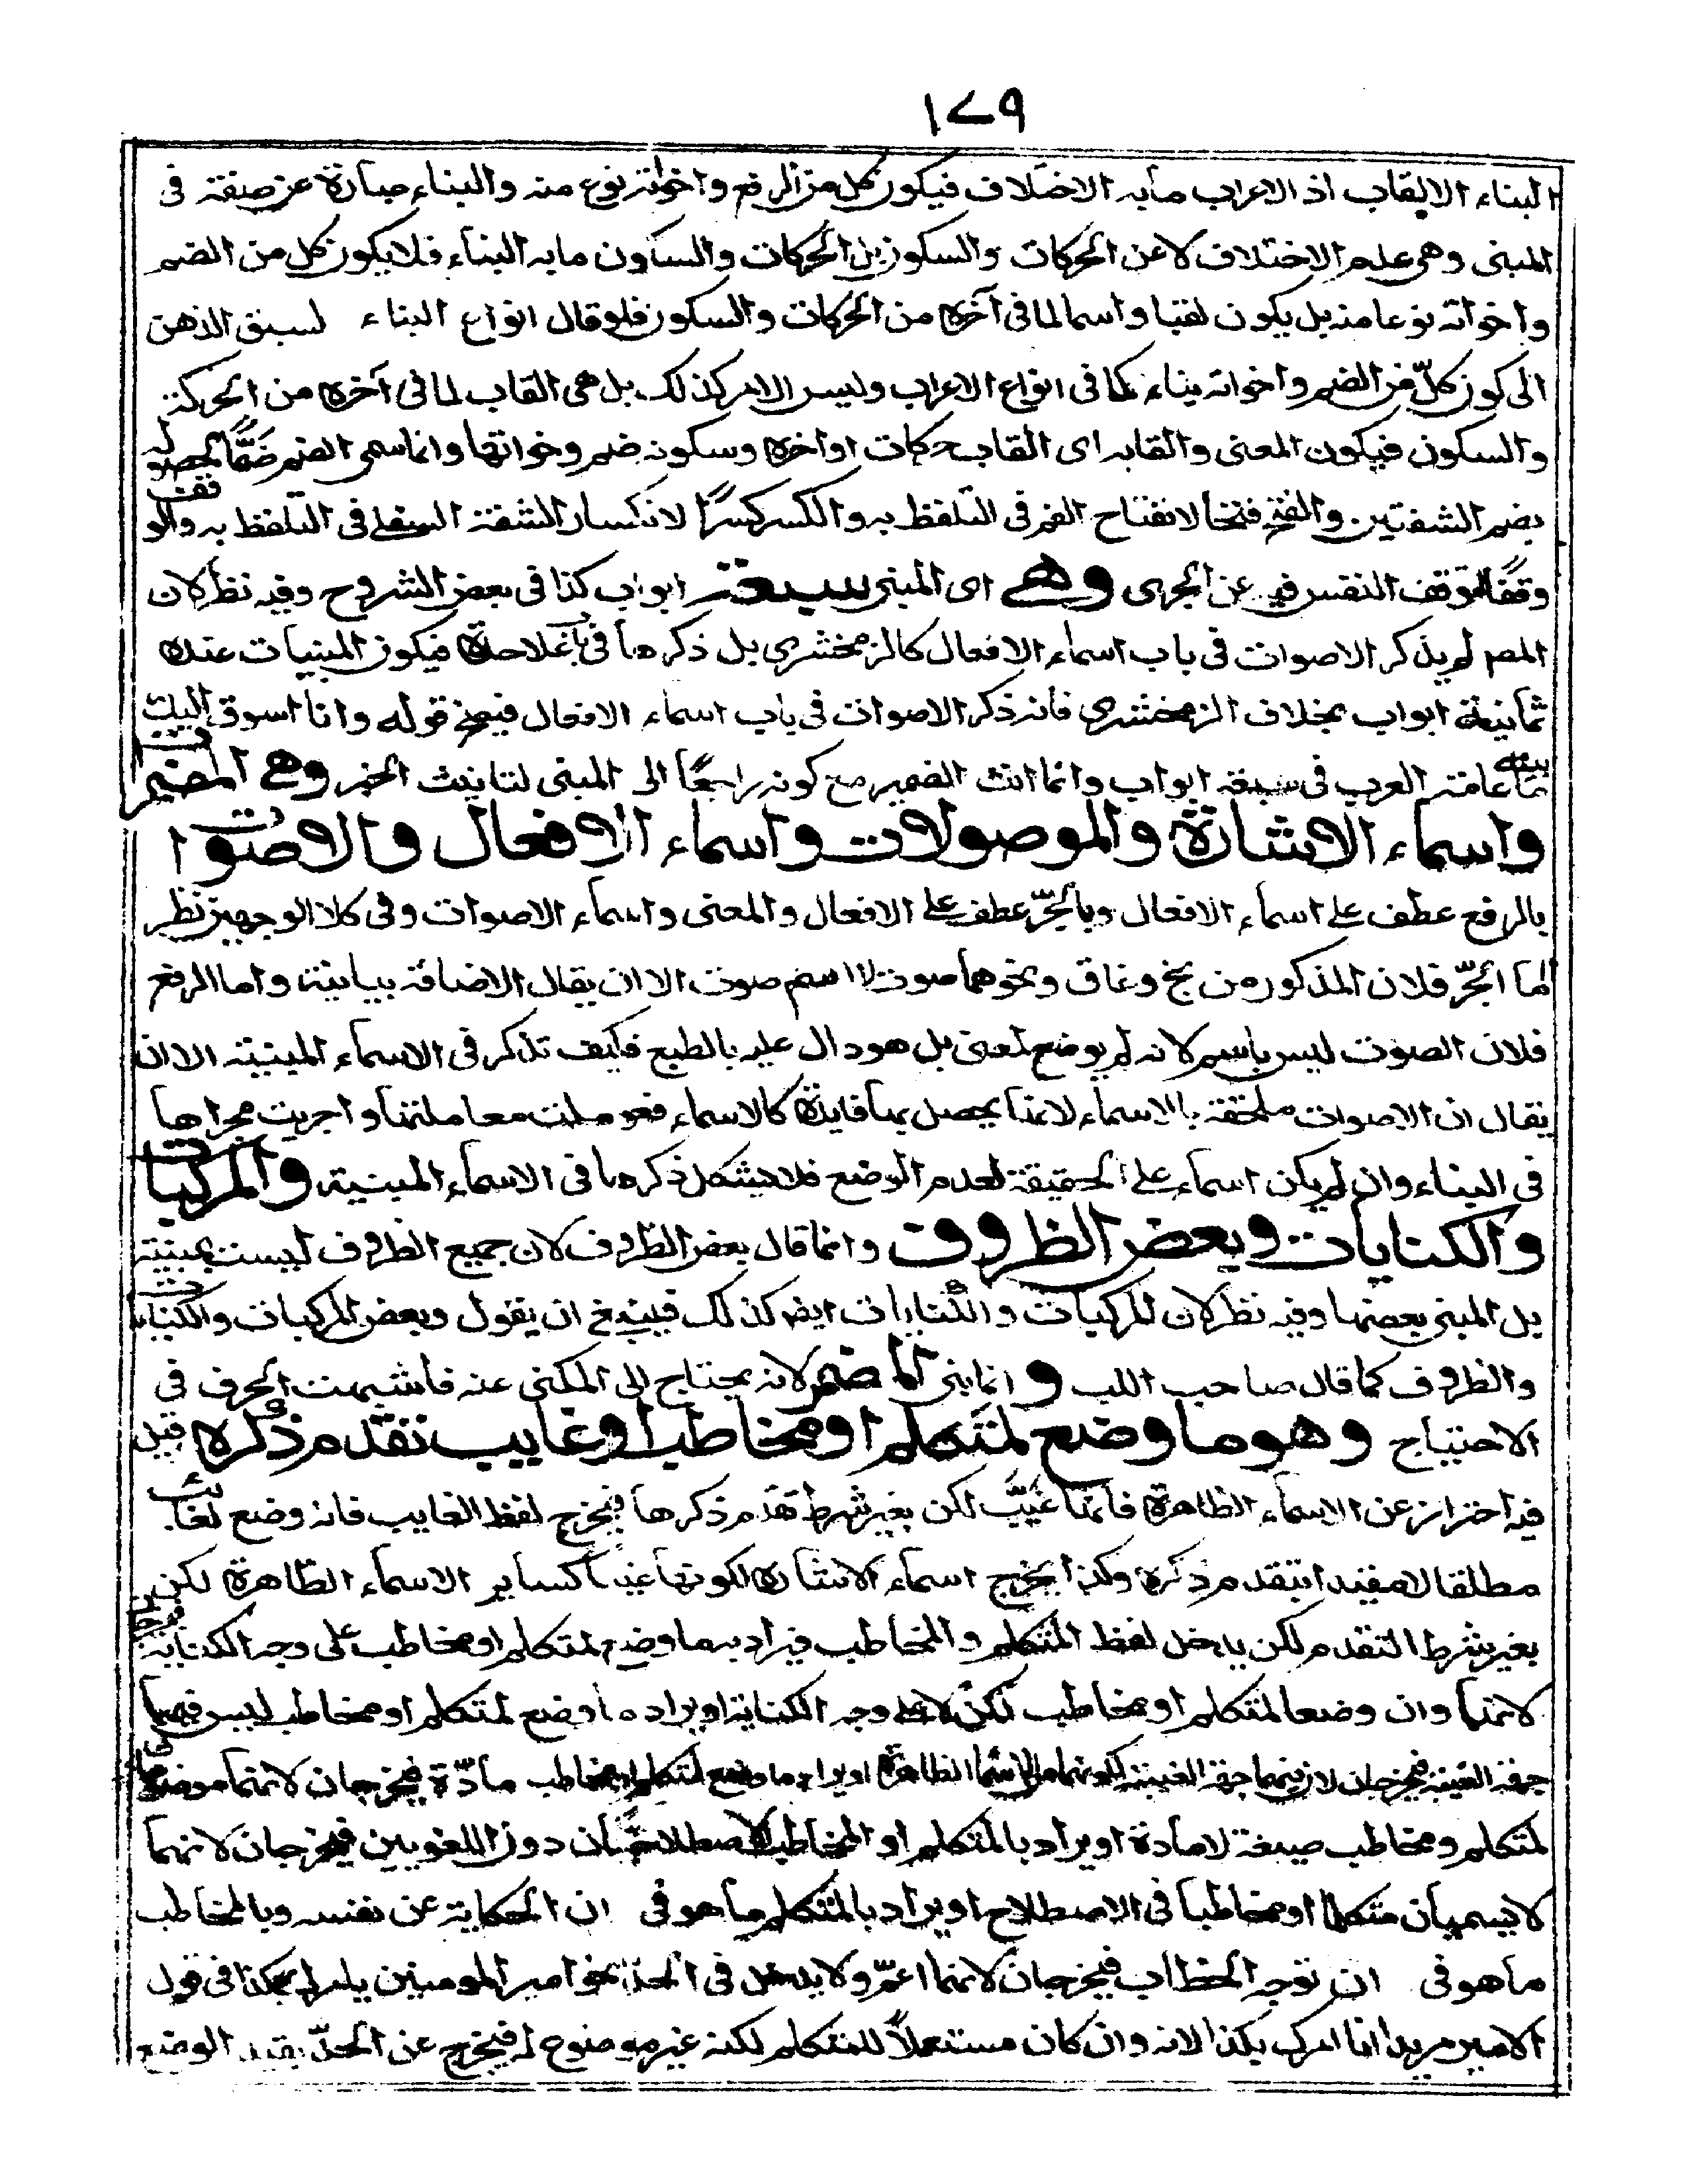 ١٧٩
البناء الالقاب اذ الاعراب مابه الاختلاف فيكون كل من الرفع واخواته نوع منه والبناء عبارة عن صفة فى
المبنى وهى علم الاختلاف لا عن الحركات والسكون بل الحركات والسكون مابه البناء فلا يكون كل من الضم
واخواته نوعا منه بل يكون لقبا واسما لما فى آخره من الحركات والسكون فلو قال انواع البناء لسبق الذهن
الى كون كلّ من الضم واخواته بناء كما فى انواع الاعراب وليس الامر كذلك بل هى القاب لما فى آخره من الحركة
والسكون فيكون المعنى والقابه اى القاب حركات اواخره وسكونه ضم وخواتها وانما سمى الضم ضمًّا لحصوله
بضم الشفتين والفتح فتحا لانفتاح الفم فى التلفظ به والكسر كسرًا لانكسار الشفة السفلى فى التلفظ به والوقف
وقفًا لتوقف النفس فيه عن الجرى وهى اى المبنى سبعة ابواب كذا فى بعض الشروح وفيه نظر لان
المصر لم يذكر الاصوات فى باب اسماء الافعال كالزمخشرى بل ذكرها فى باب علاحدة فيكون المبنيات عنده
ثمانية ابواب بخلاف الزمخشرى فانه ذكر الاصوات فى باب اسماء الافعال فيصح قوله وانا اسوق اليك
ما بنته عامة العرب فى سبعة ابواب وانما انث الضمير مع كونه راجعًا الى المبنى لتانيث الخبر وهى المضمرات
واسماء الاشارة والموصولات واسماء الافعال والاصوات
بالرفع عطف على اسماء الافعال وبالجرّ عطف على الافعال والمعنى واسماء الاصوات وفى كلا الوجهين نظر
اما الجرّ فلان المذكور من نخ وغاق ونحوهما صوت لا اسم صوت الا ان يقال الاضافة بيانية واما الرفع
فلان الصوت ليس باسم لانه لم يوضع لمعنى بل هو دال عليه بالطبع فكيف تذكر فى الاسماء المبنية الا ان
يقال ان الاصوات ملحقة بالاسماء لانما يحصل بها فايدة كالاسماء فعوملت معاملتها واجريت مجراها
فى البناء وان لم يكن اسماء على الحقيقة لعدم الوضع فلا يشكل ذكرها فى الاسماء المبنية والمركبات
والكنايات وبعض الظروف وانما قال بعض الظروف لان جميع الظروف ليست بمبنية
بل المبنى بعضها وفيه نظر لان المركبات والكنايات ايضا كذلك فينبغى ان يقول وبعض المركبات والكنايات
والظروف كما قال صاحب اللب و انما بنى المضمر لانه يحتاج الى المكنى عنه فاشبهت الحرف فى
الاحتياج وهو ما وضع لمتكلم او مخاطب او غايب تقدم ذكره قيل
فيه احتراز عن الاسماء الظاهرة فانها غيّب لكن بغير شرط تقدم ذكرها فيخرج لفظ الغايب فانه وضع لغائب
مطلقا لا مقيدا بتقدم ذكره وكذا يخرج اسماء الاشارة لكونها غيبا كساير الاسماء الظاهرة لكن
بغير شرط التقدم لكن يدخل لفظ المتكلم والمخاطب فيراد به ما وضع لمتكلم او مخاطب على وجه الكناية فيخرجان
لانهما وان وضعا لمتكلم او مخاطب لكن لا على وجه الكناية او يراد ما وضع لمتكلم او مخاطب ليس فيهما
جهة الغيبة فيخرجان لان فيهما جهة الغيبة لكونهما من الاسماء الظاهرة او يراد ما وضع لمتكلم او مخاطب مادّة فيخرجان لانهما موضوعان
لمتكلم ومخاطب صيغة لا مادة او يراد بالمتكلم او المخاطب الاصطلاحيان دون اللغويين فيخرجان لانهما
لا يسميان متكلما او مخاطبا فى الاصطلاح او يراد بالمتكلم ما هو فى ان الحكاية عن نفسه وبالمخاطب
ما هو فى ان توجه الخطاب فيخرجان لانهما اعمّ ولا يدخل فى الحدّ نحو امير المومنين يامرك بكذا فى قول
الامير مريدا انا امرك بكذا لانه وان كان مستعملاً للمتكلم لكنه غير موضوع له فيخرج عن الحدّ بقيد الوضع